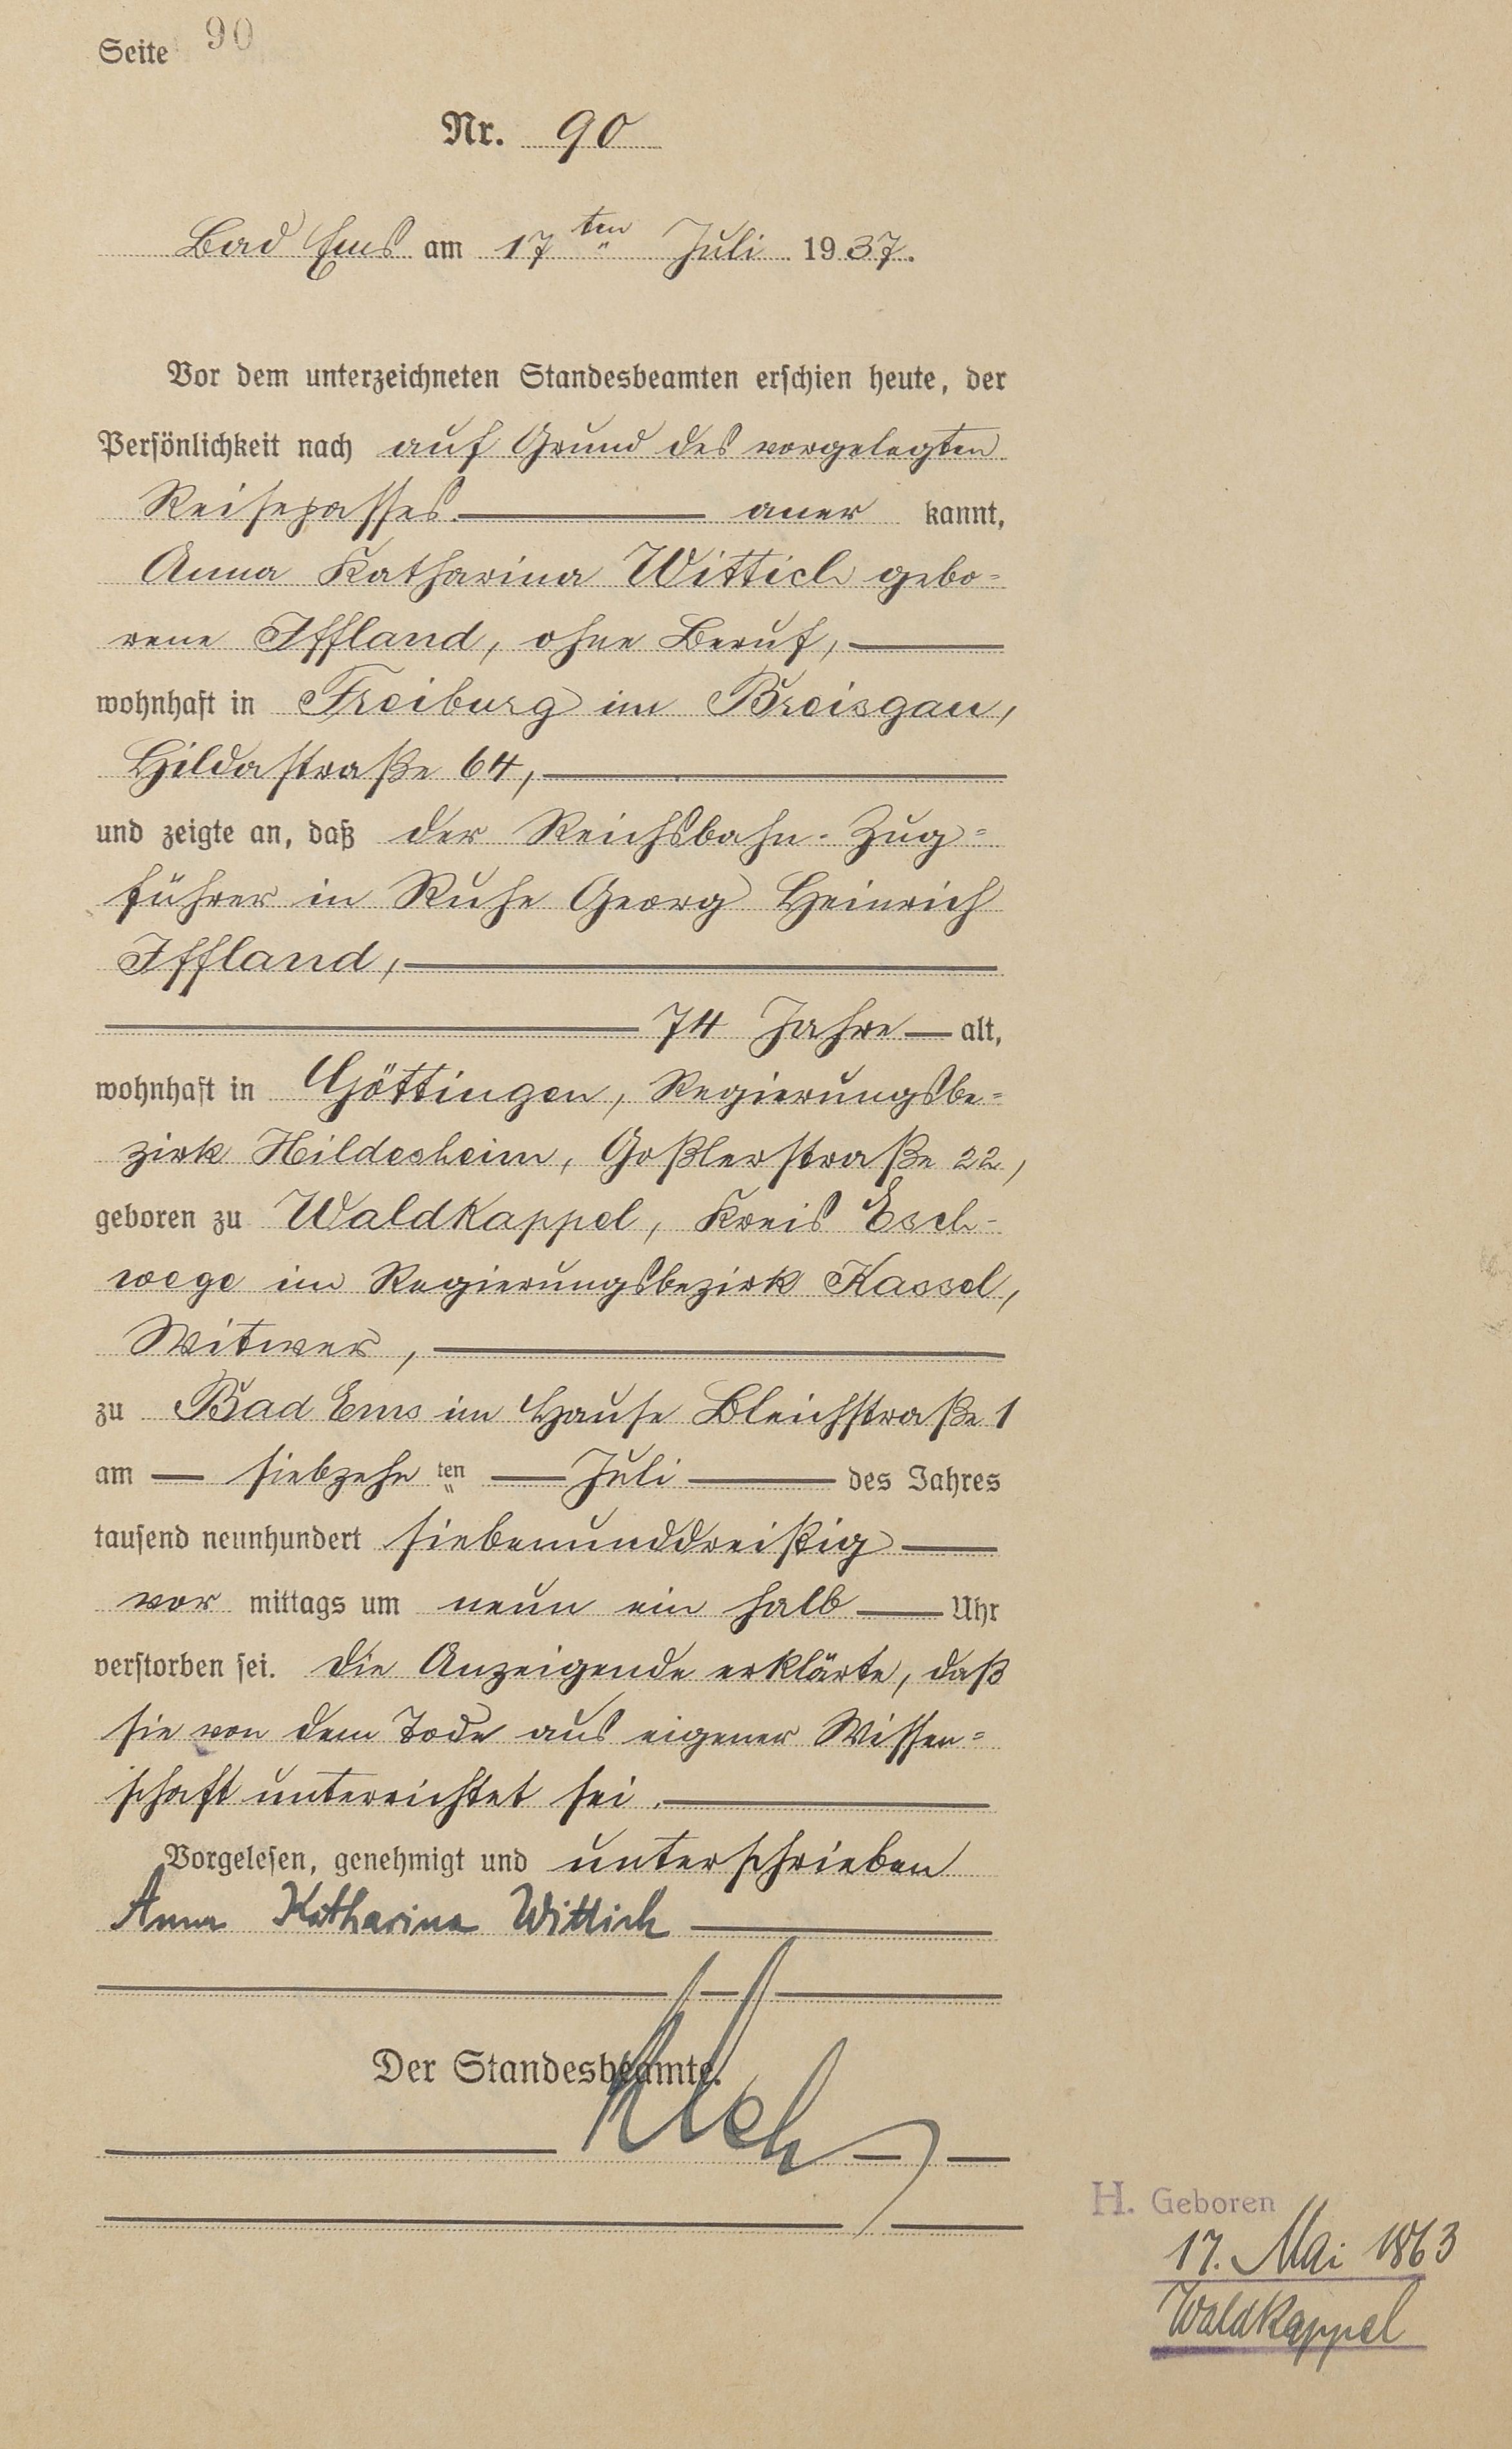 Seite 90
Nr. 90
Bad Ems am 17ten Juli 1937.
Vor dem unterzeichneten Standesbeamten erschien heute, der
Persönlichkeit nach auf Grund des vorgelegten
Reisepasses aner kannt,
Anna Katharina Wittich gebo=
rene Iffland, ohne Beruf,
wohnhaft in Freiburg im Breisgau,
Hildastraße 64,
und zeigte an, daß der Reichsbahn-Zug=
führer in Ruhe Georg Heinrich
Iffland,
74 Jahre alt,
wohnhaft in Göttingen, Regierungsbe=
zirk Hildesheim, Goßlerstraße 22,
geboren zu Waldkappel, Kreis Esch-
wege im Regierungsbezirk Kassel,
Witwer,
zu Bad Ems im Hause Bleichstraße 1
am siebzehn ten Juli des Jahres
tausend neunhundert siebenunddreißig
vor mittags um neun ein halb Uhr
verstorben sei. Die Anzeigende erklärte, daß
sie von dem Tode aus eigener Wissen=
schaft unterrichtet sei.
Vorgelesen, genehmigt und unterschrieben
Anna Katharina Wittich
Der Standesbeamte.
H. Geboren
17. Mai 1863
Waldkappel